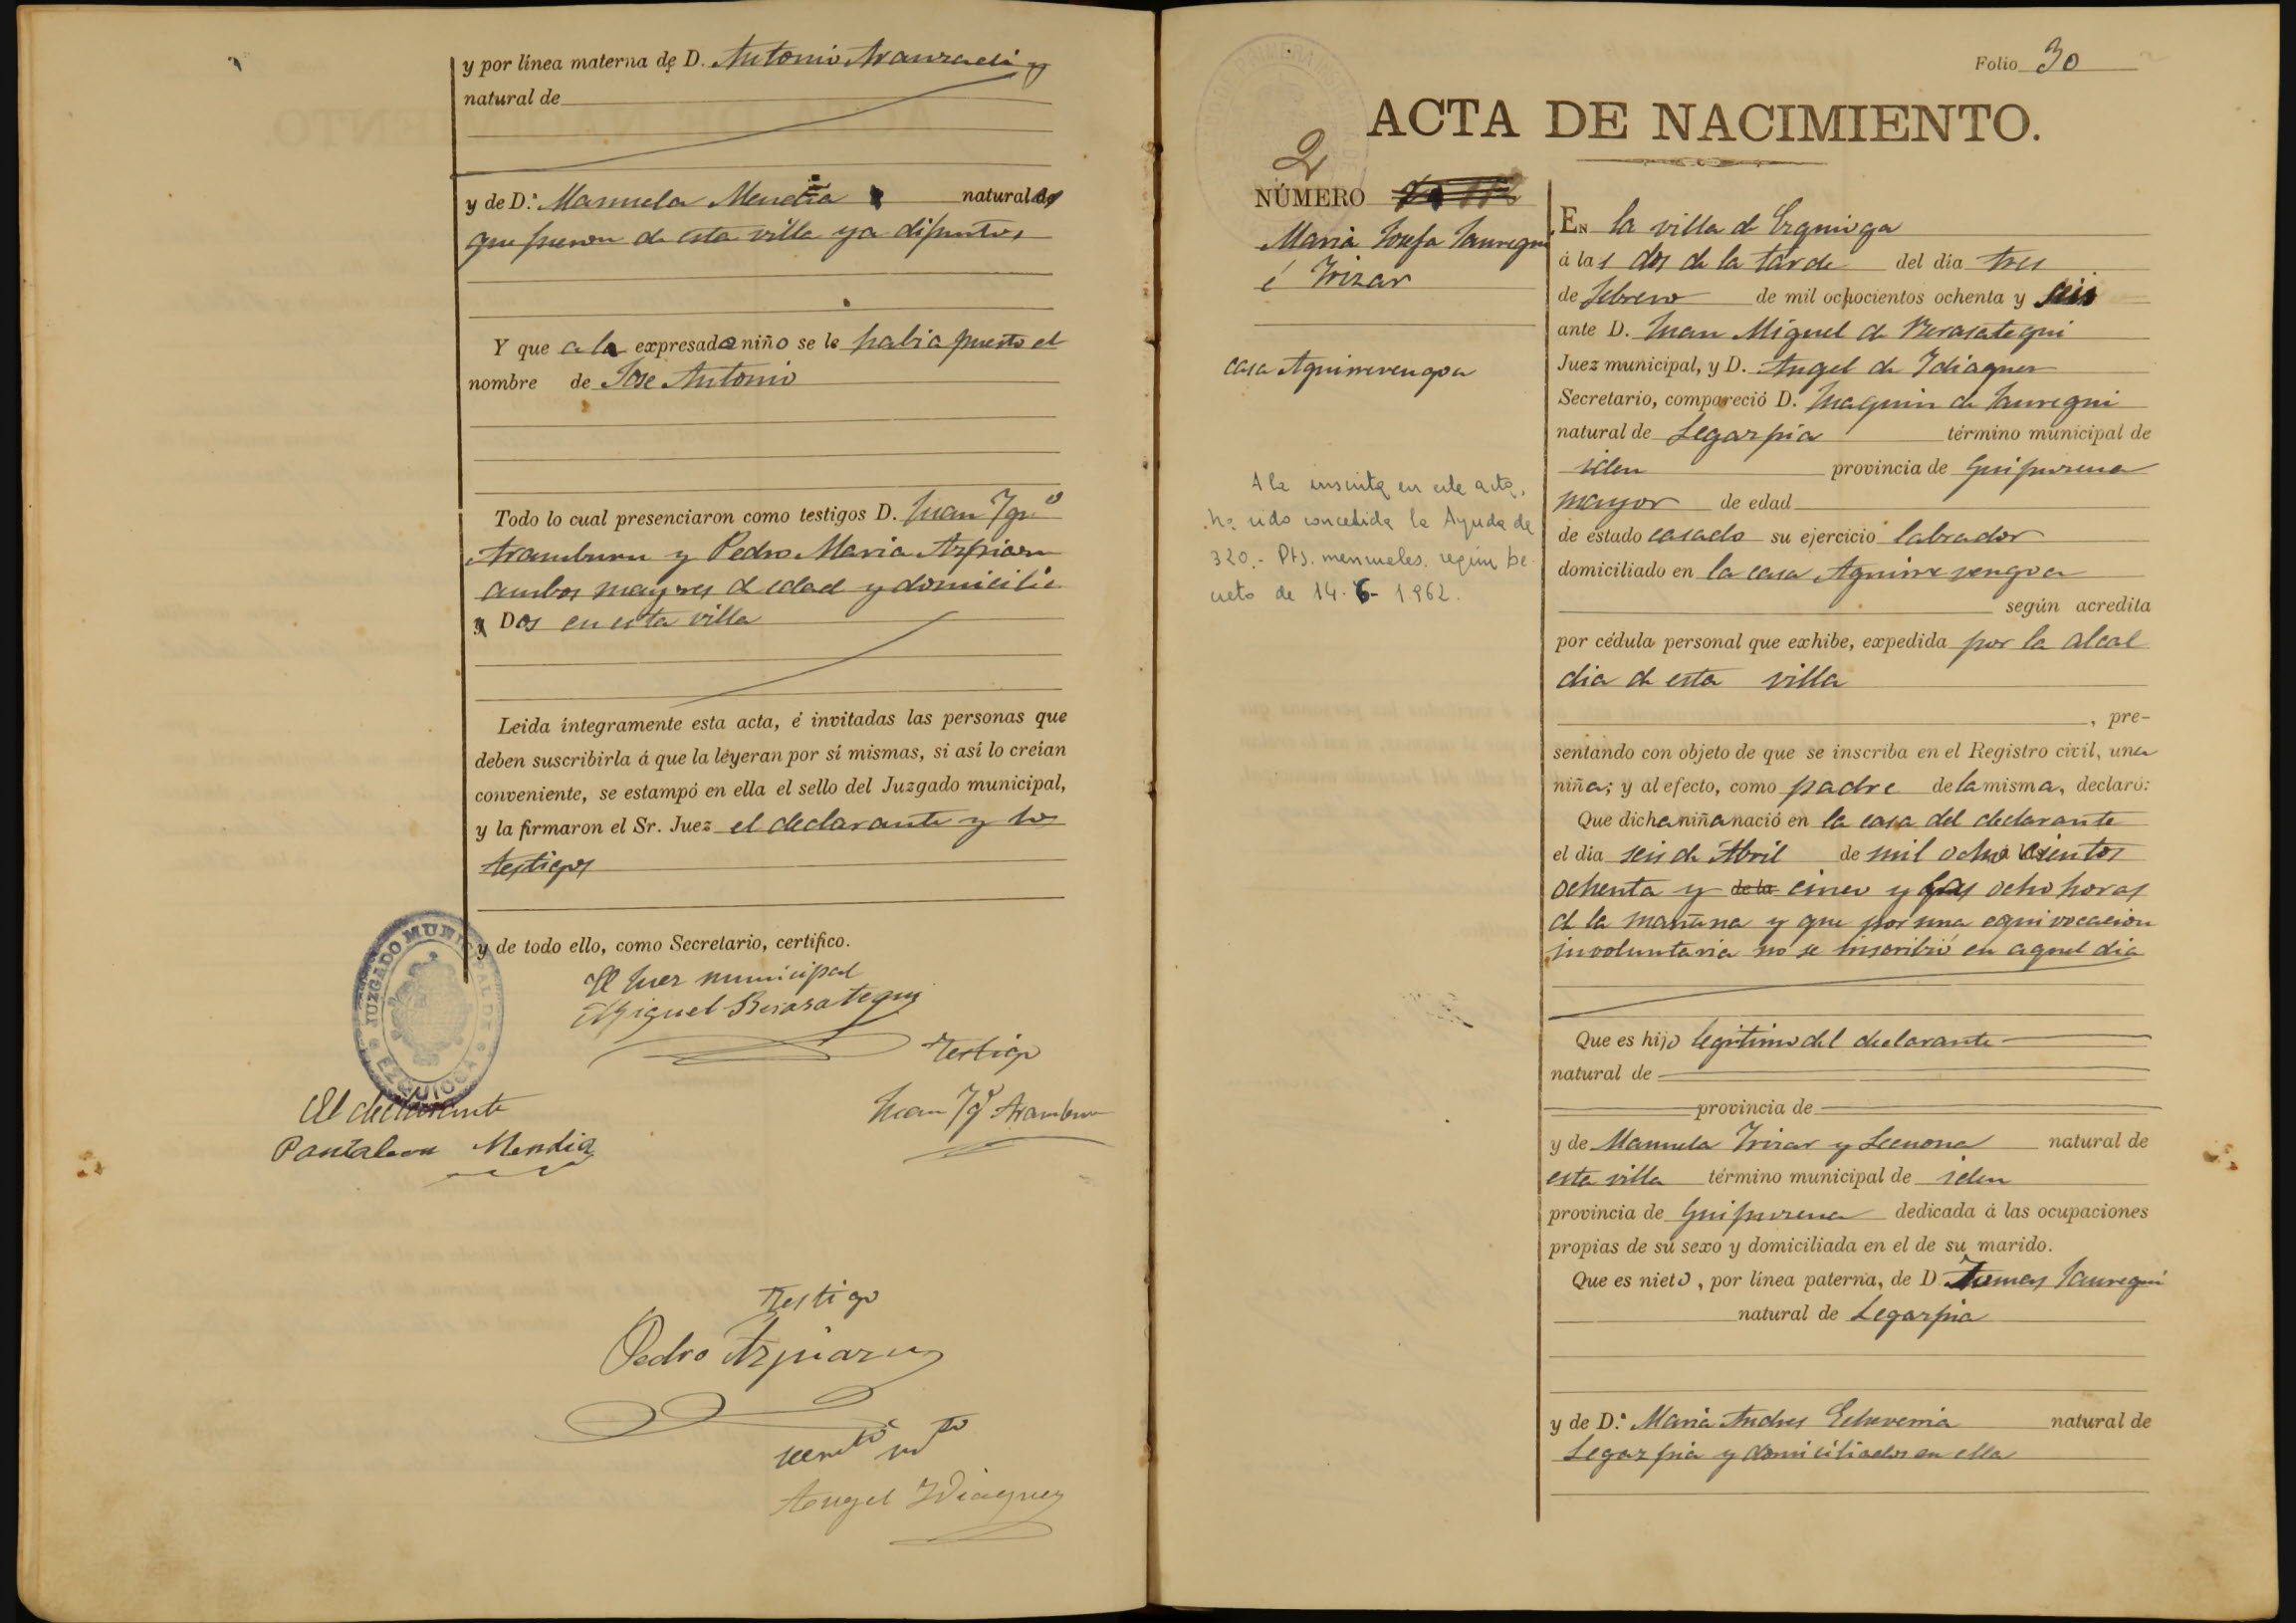 y por línea materna de D. Antonio Aranzadi y
natural de
y de D.ª Manuela Mendia naturales
que fueron de esta villa ya difuntos
Y que a la expresado niño se le habia puesto el
nombre de Jose Antonio
Todo lo cual presenciaron como testigos D. Juan Ign.º
Aramburu y Pedro Maria Azpiazu
ambos mayores de edad y domicilia
Dos en esta villa
Leida íntegramente esta acta, é invitadas las personas que
deben suscribirla á que la léyeran por sí mismas, si así lo creían
conveniente, se estampó en ella el sello del Juzgado municipal,
y la firmaron el Sr. Juez el declarante y los
testigos
y de todo ello, como Secretario, certifico.
JUZGADO MUNICIPAL DE EZQUIOGA
El Juez municipal
Miguel Berasategui
Testigo
El declarante
Juan Ig.º Aramburu
Pantaleon Mendia
Testigo
Pedro Azpiazu
Angel Idiaquez
Folio 30
ACTA DE NACIMIENTO.
2
NÚMERO
Maria Josefa Jauregui
é Irizar
casa Aguirrevengoa
A la inscrita en este acta,
ha sido concedida la Ayuda de
320.- Pts. mensuales. según De
creto de 14-6-1962.
EN la villa de Ezquioga
á las dos de la tarde del dia tres
de Febrero de mil ochocientos ochenta y seis
ante D. Juan Miguel de Berasategui
Juez municipal, y D. Angel de Idiaquez
Secretario, compareció D. Joaquin de Jauregui
natural de Legazpia término municipal de
iden provincia de Guipuzcua
mayor de edad
de estado casado su ejercicio labrador
domiciliado en la casa Aguirrevengoa
según acredita
por cédula personal que exhibe, expedida por la alcal
dia de esta villa
, pre-
sentando con objeto de que se inscriba en el Registro civil, una
niña; y al efecto, como padre de la misma, declaró:
Que dicha niña nació en la casa del declarante
el dia seis de Abril de mil ocho cientos
ochenta y de la cinco y a las ocho horas
de la mañana y que por una equivocacion
involuntaria no se inscribió en aquel dia
Que es hijo legitimo del declarante
natural de
provincia de
y de Manuela Irizar y Lecuona natural de
esta villa término municipal de iden
provincia de Guipuzcua dedicada á las ocupaciones
propias de su sexo y domiciliada en el de su marido.
Que es nieto, por línea paterna, de D. Tomas Jauregui
natural de Legazpia
y de D.ª Maria Andres Echeverria natural de
Legazpia y domiciliados en ella